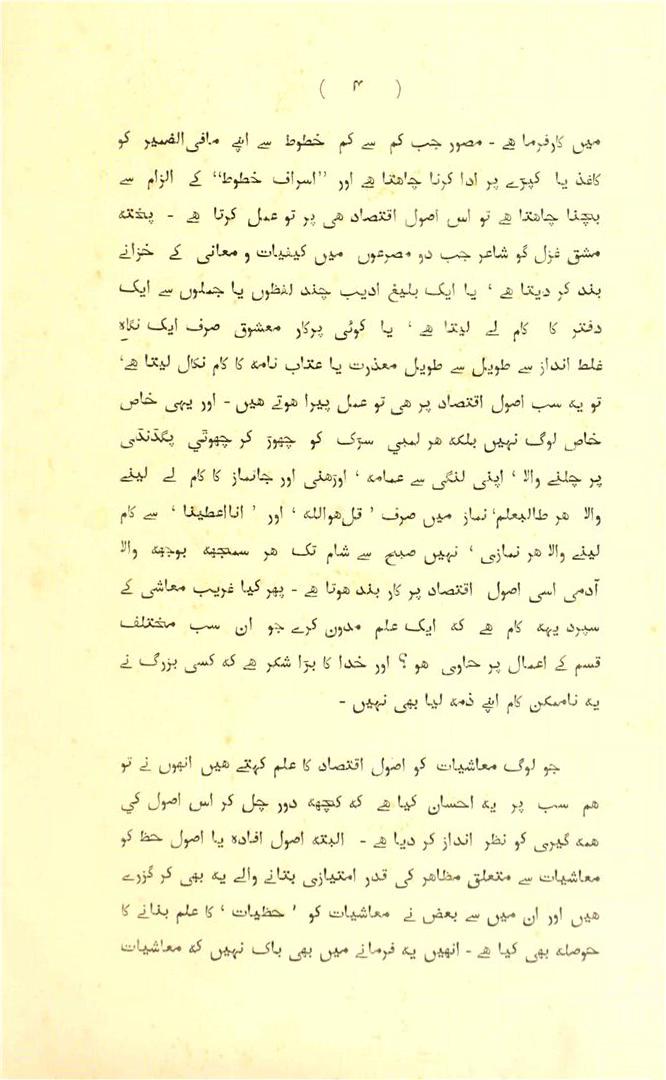 ( ۴ )
میں کارفرما ہے - مصور جب کم سے کم خطوط سے اپنے مافی‌الضمیر کو
کاغذ یا کپڑے پر ادا کرنا چاہتا ہے اور ”اسراف خطوط“ کے الزام سے
بچنا چاہتا ہے تو اس اصول اقتصاد ہی پر تو عمل کرتا ہے - پختہ
مشق غزل گو شاعر جب دو مصرعوں میں کیفیات و معانی کے خزانے
بند کر دیتا ہے ، یا ایک بلیغ ادیب چند لفظوں یا جملوں سے ایک
دفتر کا کام لے لیتا ہے ، یا کوئی پرکار معشوق صرف ایک نگاہِ
غلط انداز سے طویل سے طویل معذرت یا عتاب نامہ کا کام نکال لیتا ہے،
تو یہ سب اصول اقتصاد پر ہی تو عمل پیرا ہوتے ہیں - اور یہی خاص
خاص لوگ نہیں بلکہ ہر لمبی سڑک کو چھوڑ کر چھوٹی پگڈنڈی
پر چلنے والا ، اپنی لنگی سے عمامہ ، اوڑھنی اور جانماز کا کام لے لینے
والا ہر طالبعلم، نماز میں صرف ' قل‌ھوالله ، اور ' انااعطینا ، سے کام
لینے والا ہر نمازی ، نہیں صبح سے شام تک ہر سمجھہ بوجھہ والا
آدمی اسی اصول اقتصاد پر کار بند ہوتا ہے - پھر کیا غریب معاشی کے
سپرد یہہ کام ہے کہ ایک علم مدون کرے جو ان سب مختلف
قسم کے اعمال پر حاوی ہو ؟ اور خدا کا بڑا شکر ہے کہ کسی بزرگ نے
یہ ناممکن کام اپنے ذمہ لیا بھی نہیں -
جو لوگ معاشیات کو اصول اقتصاد کا علم کہتے ہیں انھوں نے تو
ہم سب پر یہ احسان کیا ہے کہ کچھہ دور چل کر اس اصول کی
ہمہ گیری کو نظر انداز کر دیا ہے - البتہ اصول افادہ یا اصول حظ کو
معاشیات سے متعلق مظاہر کی قدر امتیازی بتانے والے یہ بھی کر گزرے
ہیں اور ان میں سے بعض نے معاشیات کو ' حظیات ، کا علم بنانے کا
حوصلہ بھی کیا ہے - انھیں یہ فرمانے میں بھی باک نہیں کہ معاشیات